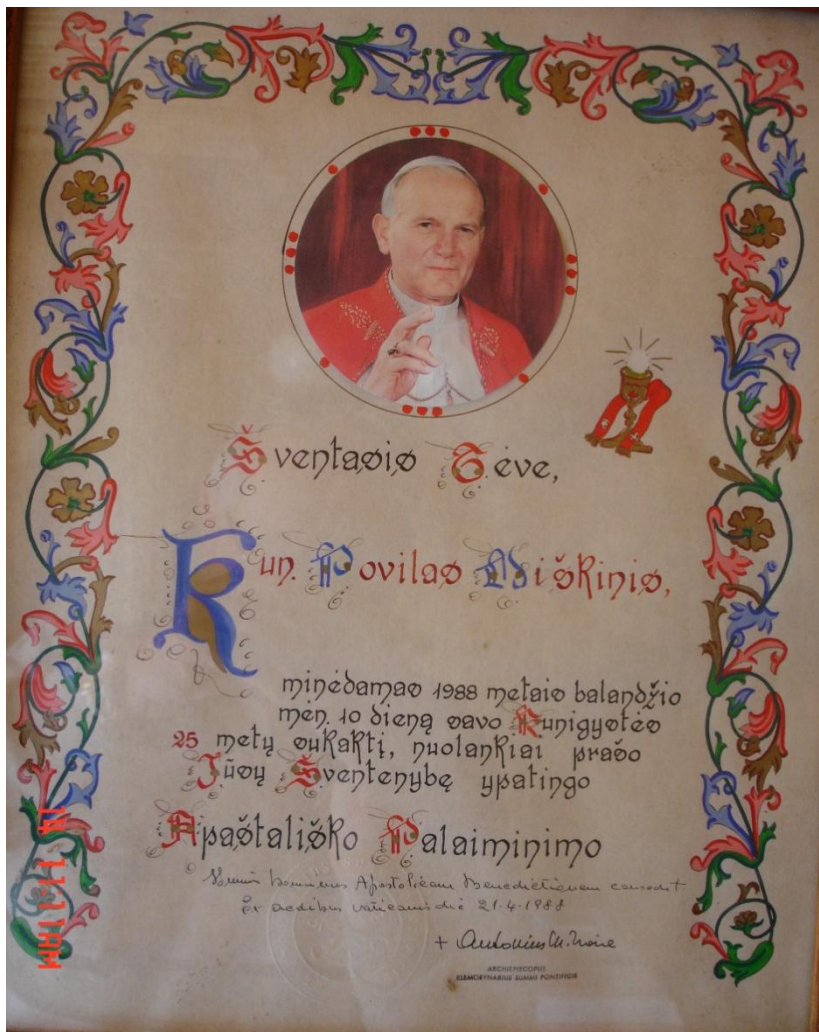 Šventasis Tėve,
Kun. Povilas Miškinis,
minėdamas 1988 metais balandžio
mėn. 10 dieną savo Kunigystės
25 metų sukaktį, nuolankiai prašo
Jūsų Šventenybę ypatingo
Apaštališko Palaiminimo
Apostolicam Benedictionem
Ex aedibus vaticanis die 21-4-1988
+ Antonius M.
ARCHIEPISCOPUS
ELEMOSYNARIUS SUMMI PONTIFICIS
11:11AM